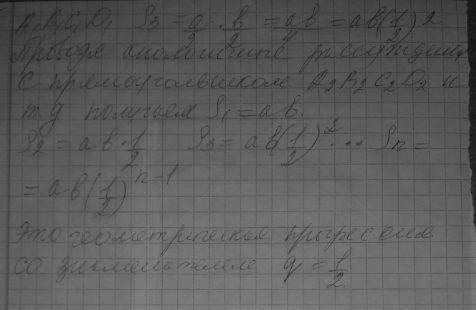 A₁B₁C₁D₁ S₃ = a/2 · b/2 = ab/4 = ab(1/2)²
Проводя аналогичные рассуждения
с прямоугольником A₂B₂C₂D₂ и
т д получаем S₁ = ab.
S₂ = ab · 1/2 S₃ = ab(1/2)² ... Sₙ =
= ab(1/2)ⁿ⁻¹
Это геометрическая прогрессия
со знаменателем q = 1/2